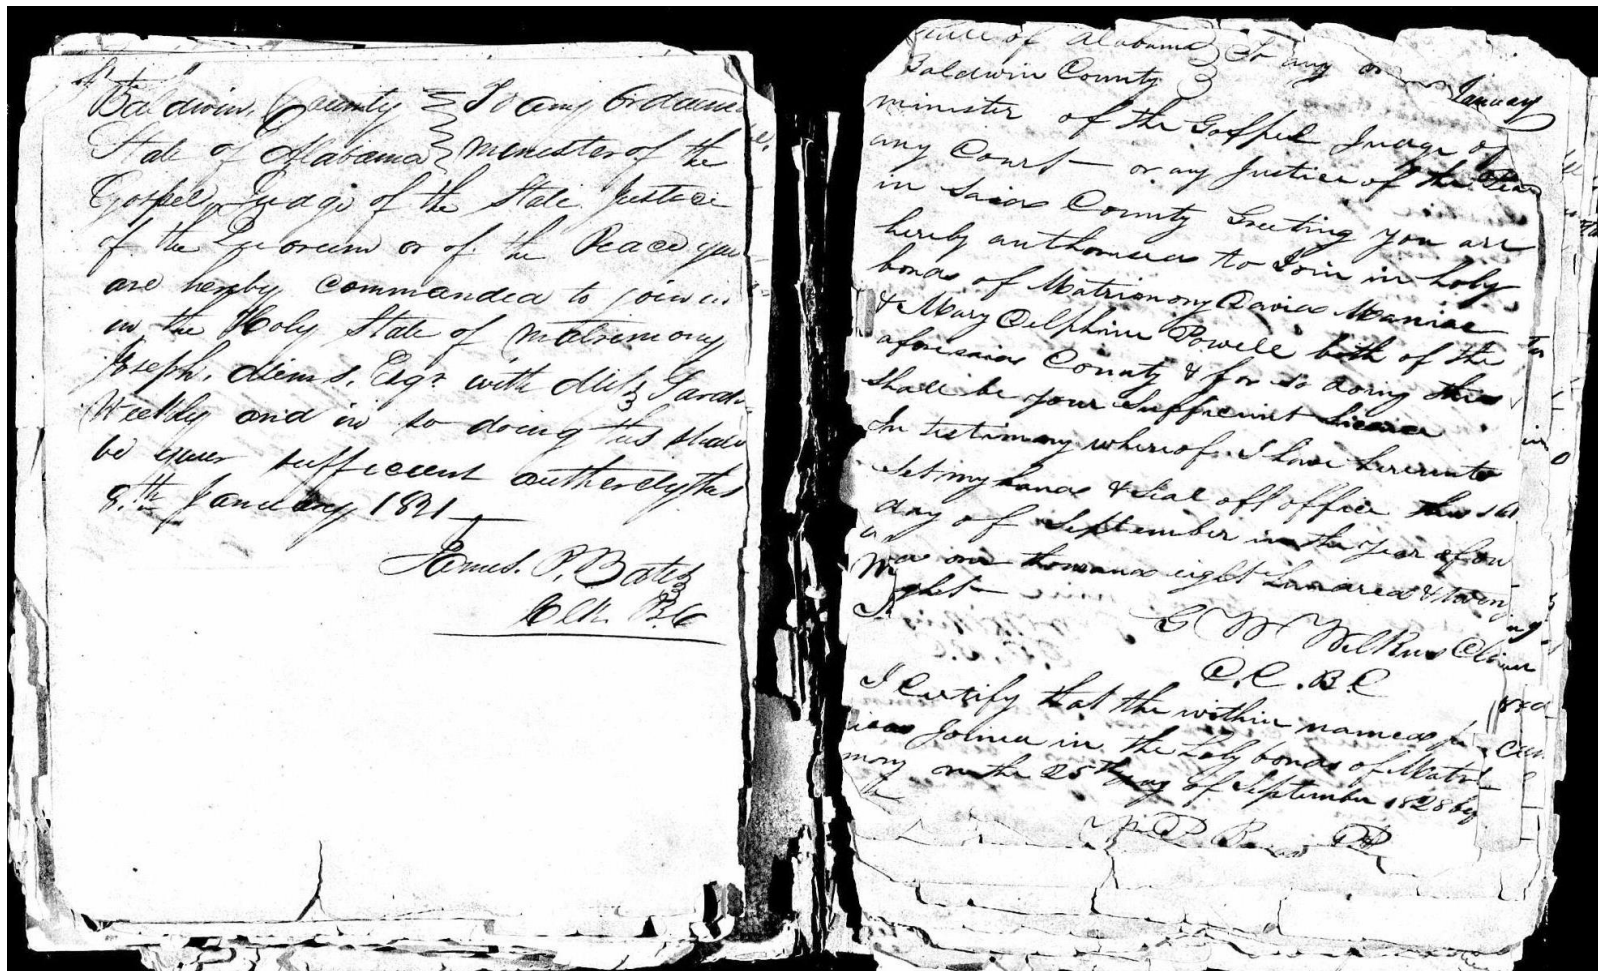 Baldwin, County To any Ordained
State of Alabama Menester of the
Gospel, Judge of the State Justace
of the Quorum or of the Peace you
are hereby commanded to join in
in the Holy State of matremony
Joseph, Stiems, Esqr. with Miss Sarah
Weekly and in so doing this shall
be your suffecientautherety this
8.th January 1821
James. P. Bates
Clk. B.C
State of Alabama To any
Baldwin County
January
minister of the Gosppel Judge of
any Court or any Justice of the Peace
in Said County Greeting you are
hereby authorised to Join in holy
bonds of Matrimony David Maniac
& Mary Delphine Powell both of the
aforesaid County & for so doing this
shall be your Sufficient license
In testimony whereof I have hereunto
Set my hand & Seal off office this
day of September in the year of our
one thousand eight hundred & twenty
eight
G W Wilkins
C.C.B.C
I Certify that the within named
Joined in the Holy bonds of Matri
mony on the 25th day of September 1828 by